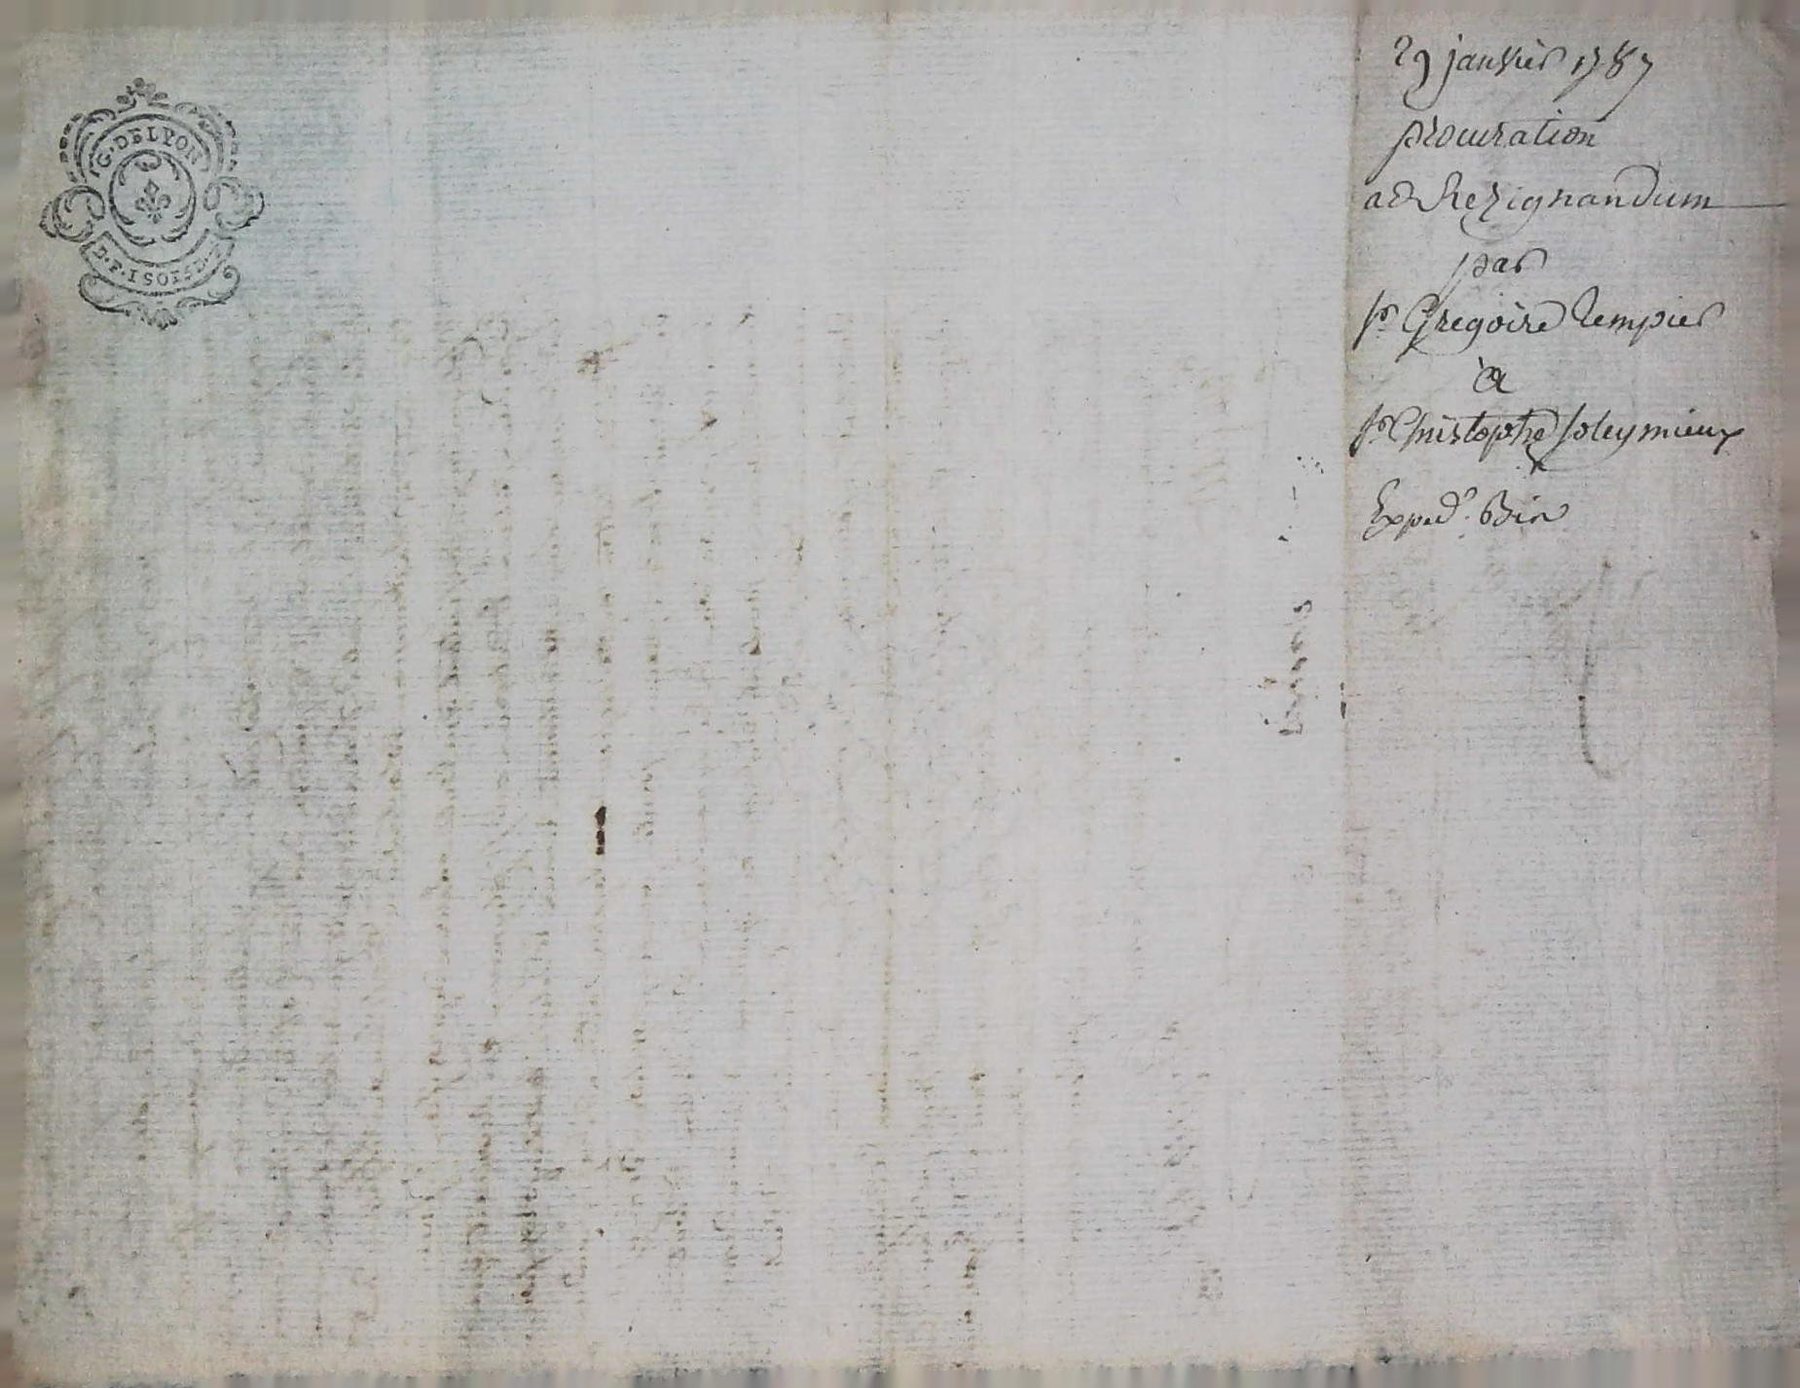 G. DE LYON
29 janvier 1787
procuration
ad Rezignandum
par
sr Gregoire Rempier
à
sr Christophe soleymieux
Exped.